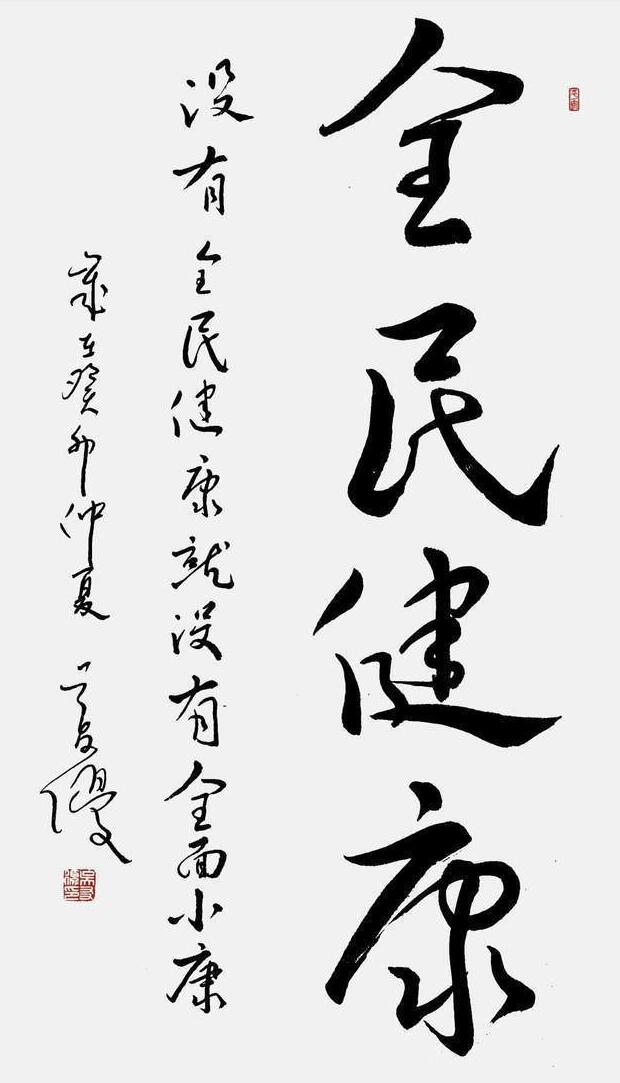 全民健康
没有全民健康就没有全面小康
岁在癸卯仲夏